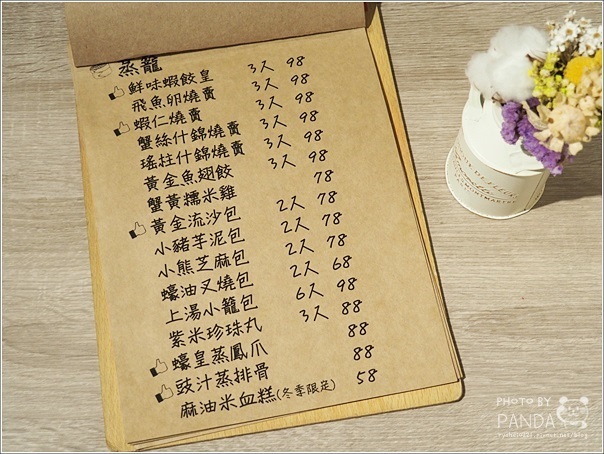 蒸籠
鮮味蝦餃皇 3入 98
飛魚卵燒賣 3入 98
蝦仁燒賣 3入 98
蟹絲什錦燒賣 3入 98
瑤柱什錦燒賣 3入 98
黃金魚翅餃 3入 98
蟹黃糯米雞 78
黃金流沙包 2入 78
小豬芋泥包 2入 78
小熊芝麻包 2入 78
蠔油叉燒包 2入 68
上湯小籠包 6入 98
紫米珍珠丸 3入 88
蠔皇蒸鳳爪 88
豉汁蒸排骨 88
麻油米血糕(冬季限定) 58
PHOTO BY
PANDA